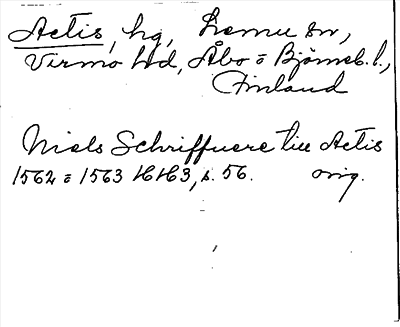 Aetis, hg, Lemu sn,
Virmo hd, Åbo o Björneb. l.,
Finland
Niels Schriffuere till Aetis
1562 o 1563 HH3, s. 56. orig.